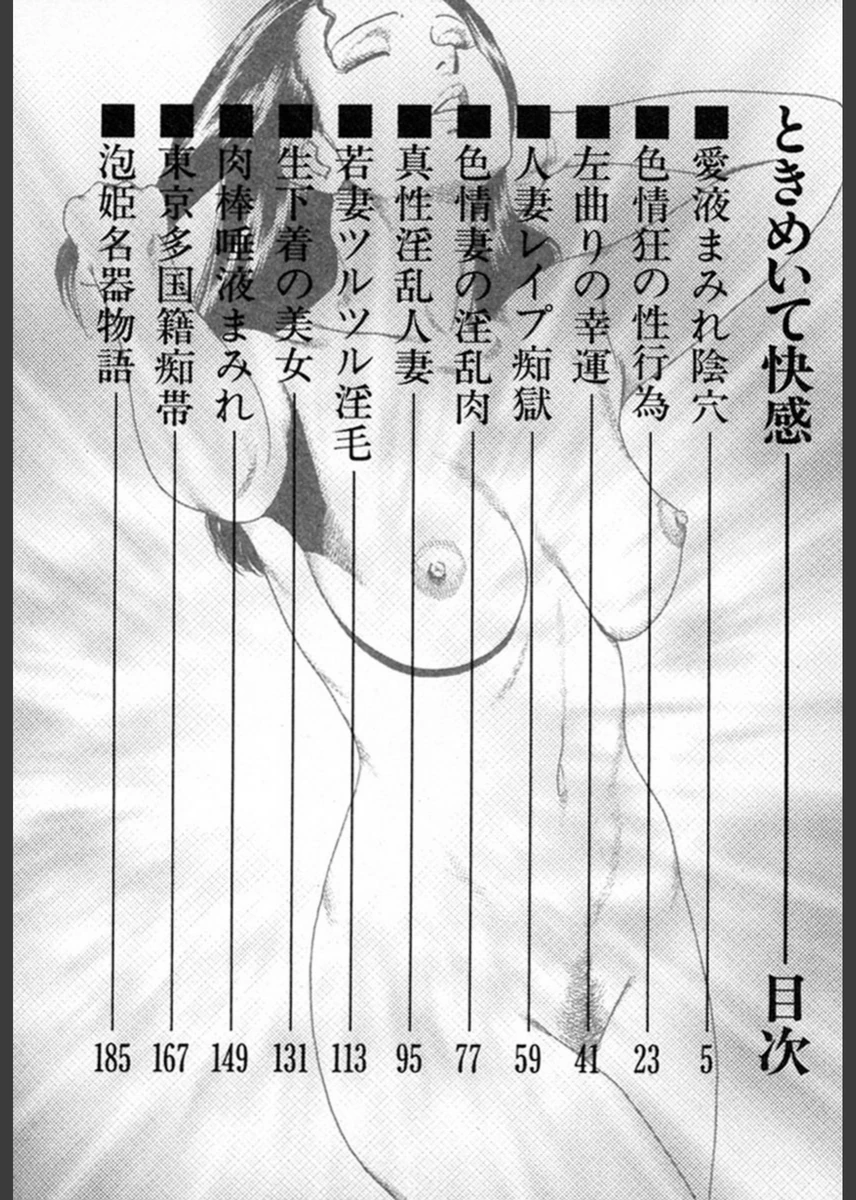 ときめいて快感 目次
■愛液まみれ陰穴 5
■色情狂の性行為 23
■左曲りの幸運 41
■人妻レイプ痴獄 59
■色情妻の淫乱肉 77
■真性淫乱人妻 95
■若妻ツルツル淫毛 113
■生下着の美女 131
■肉棒唾液まみれ 149
■東京多国籍痴帯 167
■泡姫名器物語 185